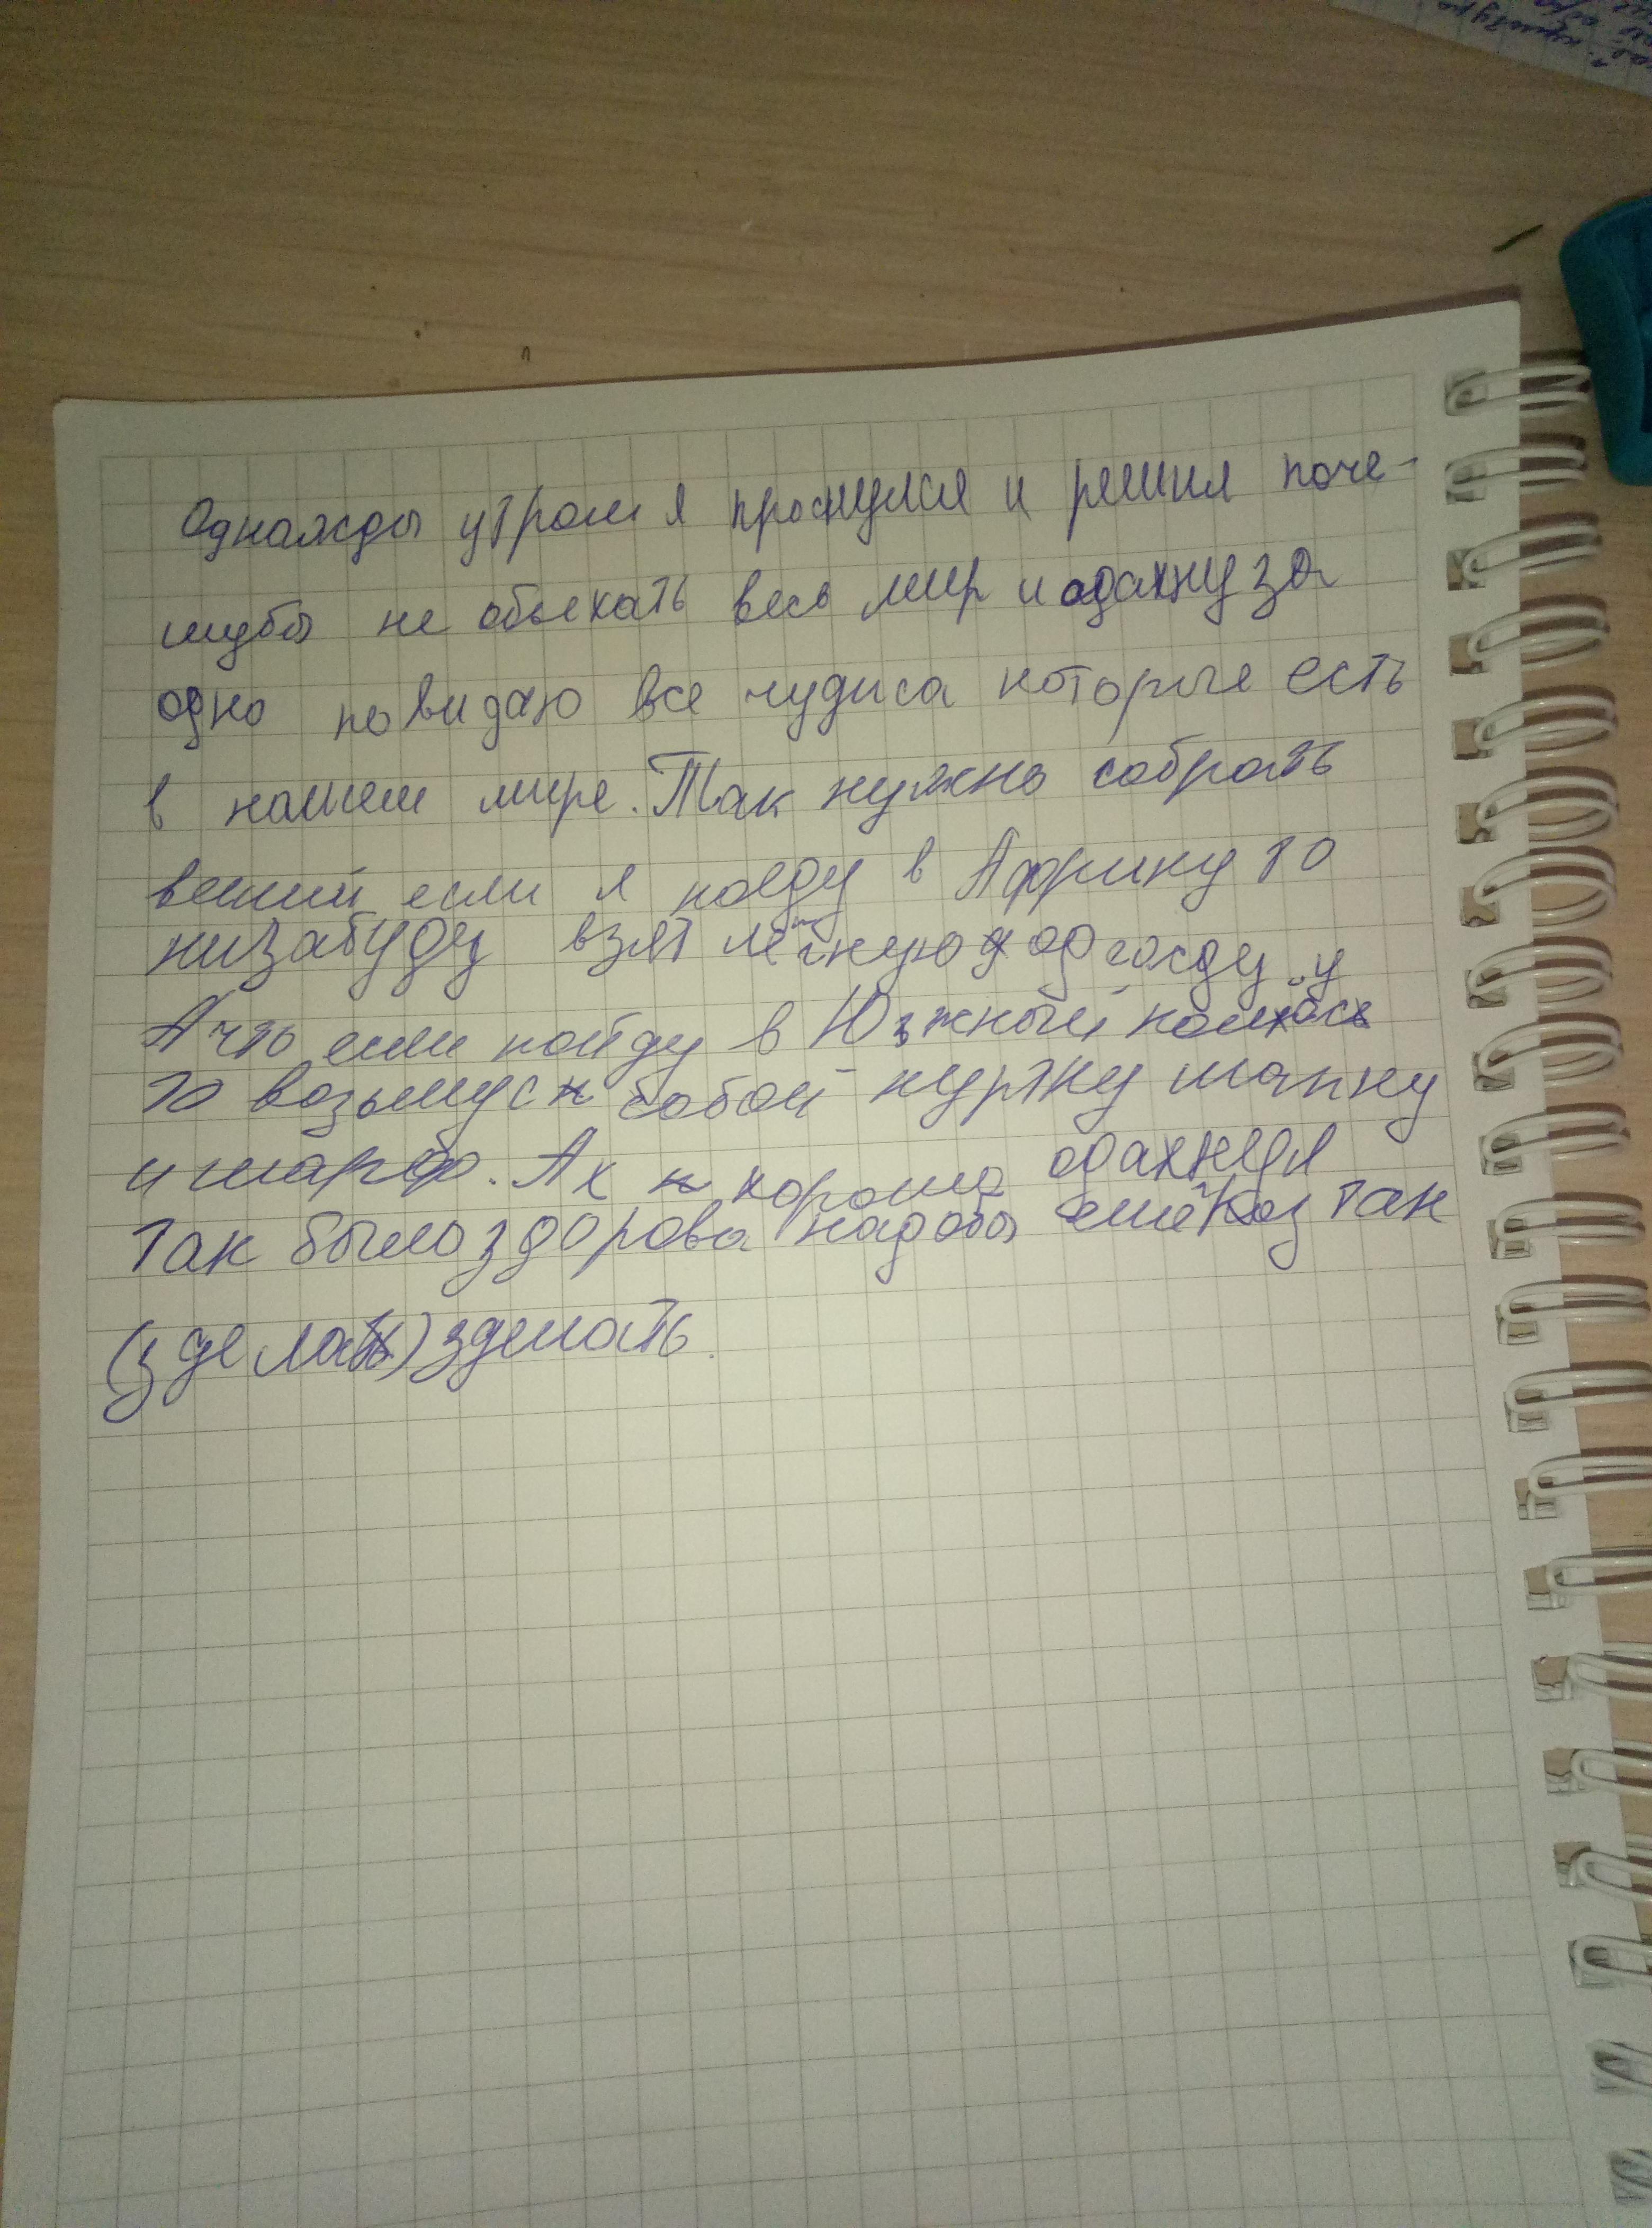 Однажды утром я проснулся и решил поче-
мубы не обьехать весь мир и одахну за
одно повидаю все чудиса которые есть
в нашем мире. Так нужно собрать
вещий если я поеду в Африку то
низабуду взят лёгкую одгожду
А что если пойду в Южный
то возьму с собой куртку шапку
и шарф. Ах хорошо одахнул
так было здорова надобы ещё Раз так
(зделать) зделать.